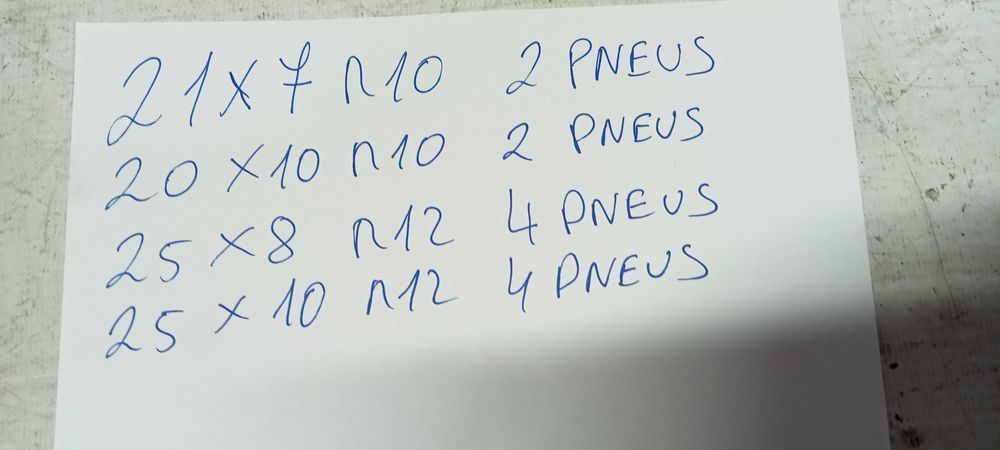 21 x 7 r10 2 PNEUS
20 x 10 r10 2 PNEUS
25 x 8 r12 4 PNEUS
25 x 10 r12 4 PNEUS